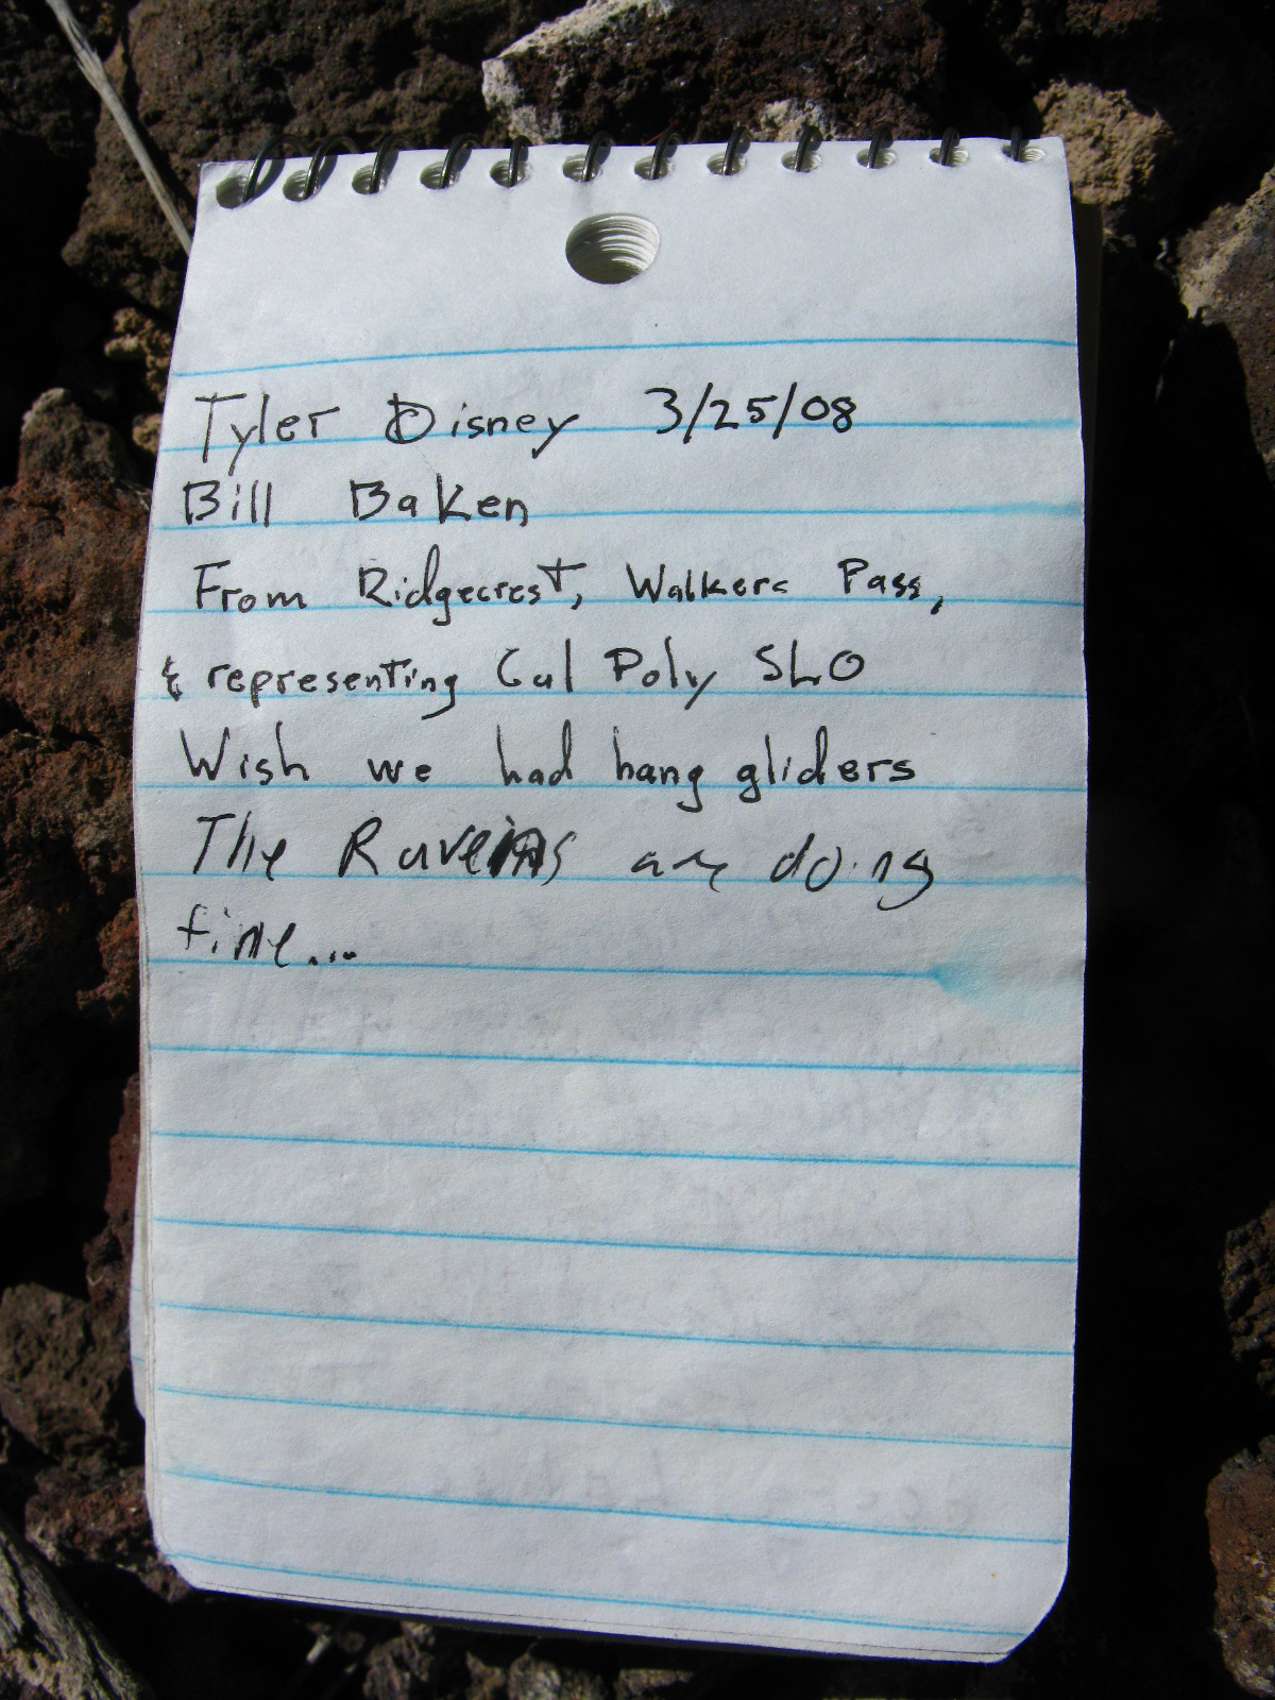 Tyler Disney 3/25/08
Bill Baken
From Ridgecrest, Walkers Pass,
& representing Cal Poly SLO
Wish we had hang gliders
The Ravens are doing
fine...